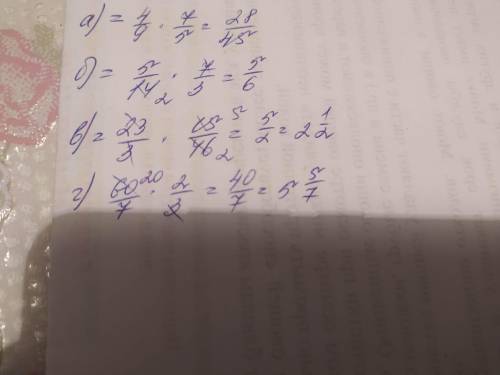 а) = 4/9 · 7/5 = 28/45
б) = 5/14 2 · 7/3 = 5/6
в) = 23/3 · 15/16 5 2 = 5/2 = 2 1/2
г) 60/7 20 · 2/3 = 40/7 = 5 5/7